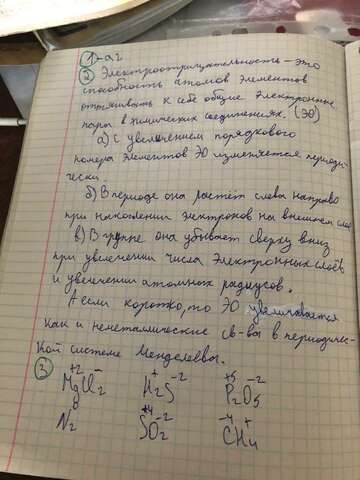 ① - а2
② Электроотрицательность - это
способность атомов элементов
оттягивать к себе общие электронные
пары в химических соединениях. (ЭО)
а) С увеличением порядкового
номера элементов ЭО изменяется периоди-
чески.
б) В периоде она растёт слева направо
при накоплении электронов на внешнем слое
в) В группе она убывает сверху вниз
при увлечении числа электронных слоёв
и увеличении атомных радиусов.
А если коротко, то ЭО увеличивается
как и неметаллические св-вы в периодичес-
кой системе Менделеевы.
③ +2 + -2 +5 -2
MgCl2 H2S P2O5
0 +4 -2 -4 +
N2 SO2 CH4